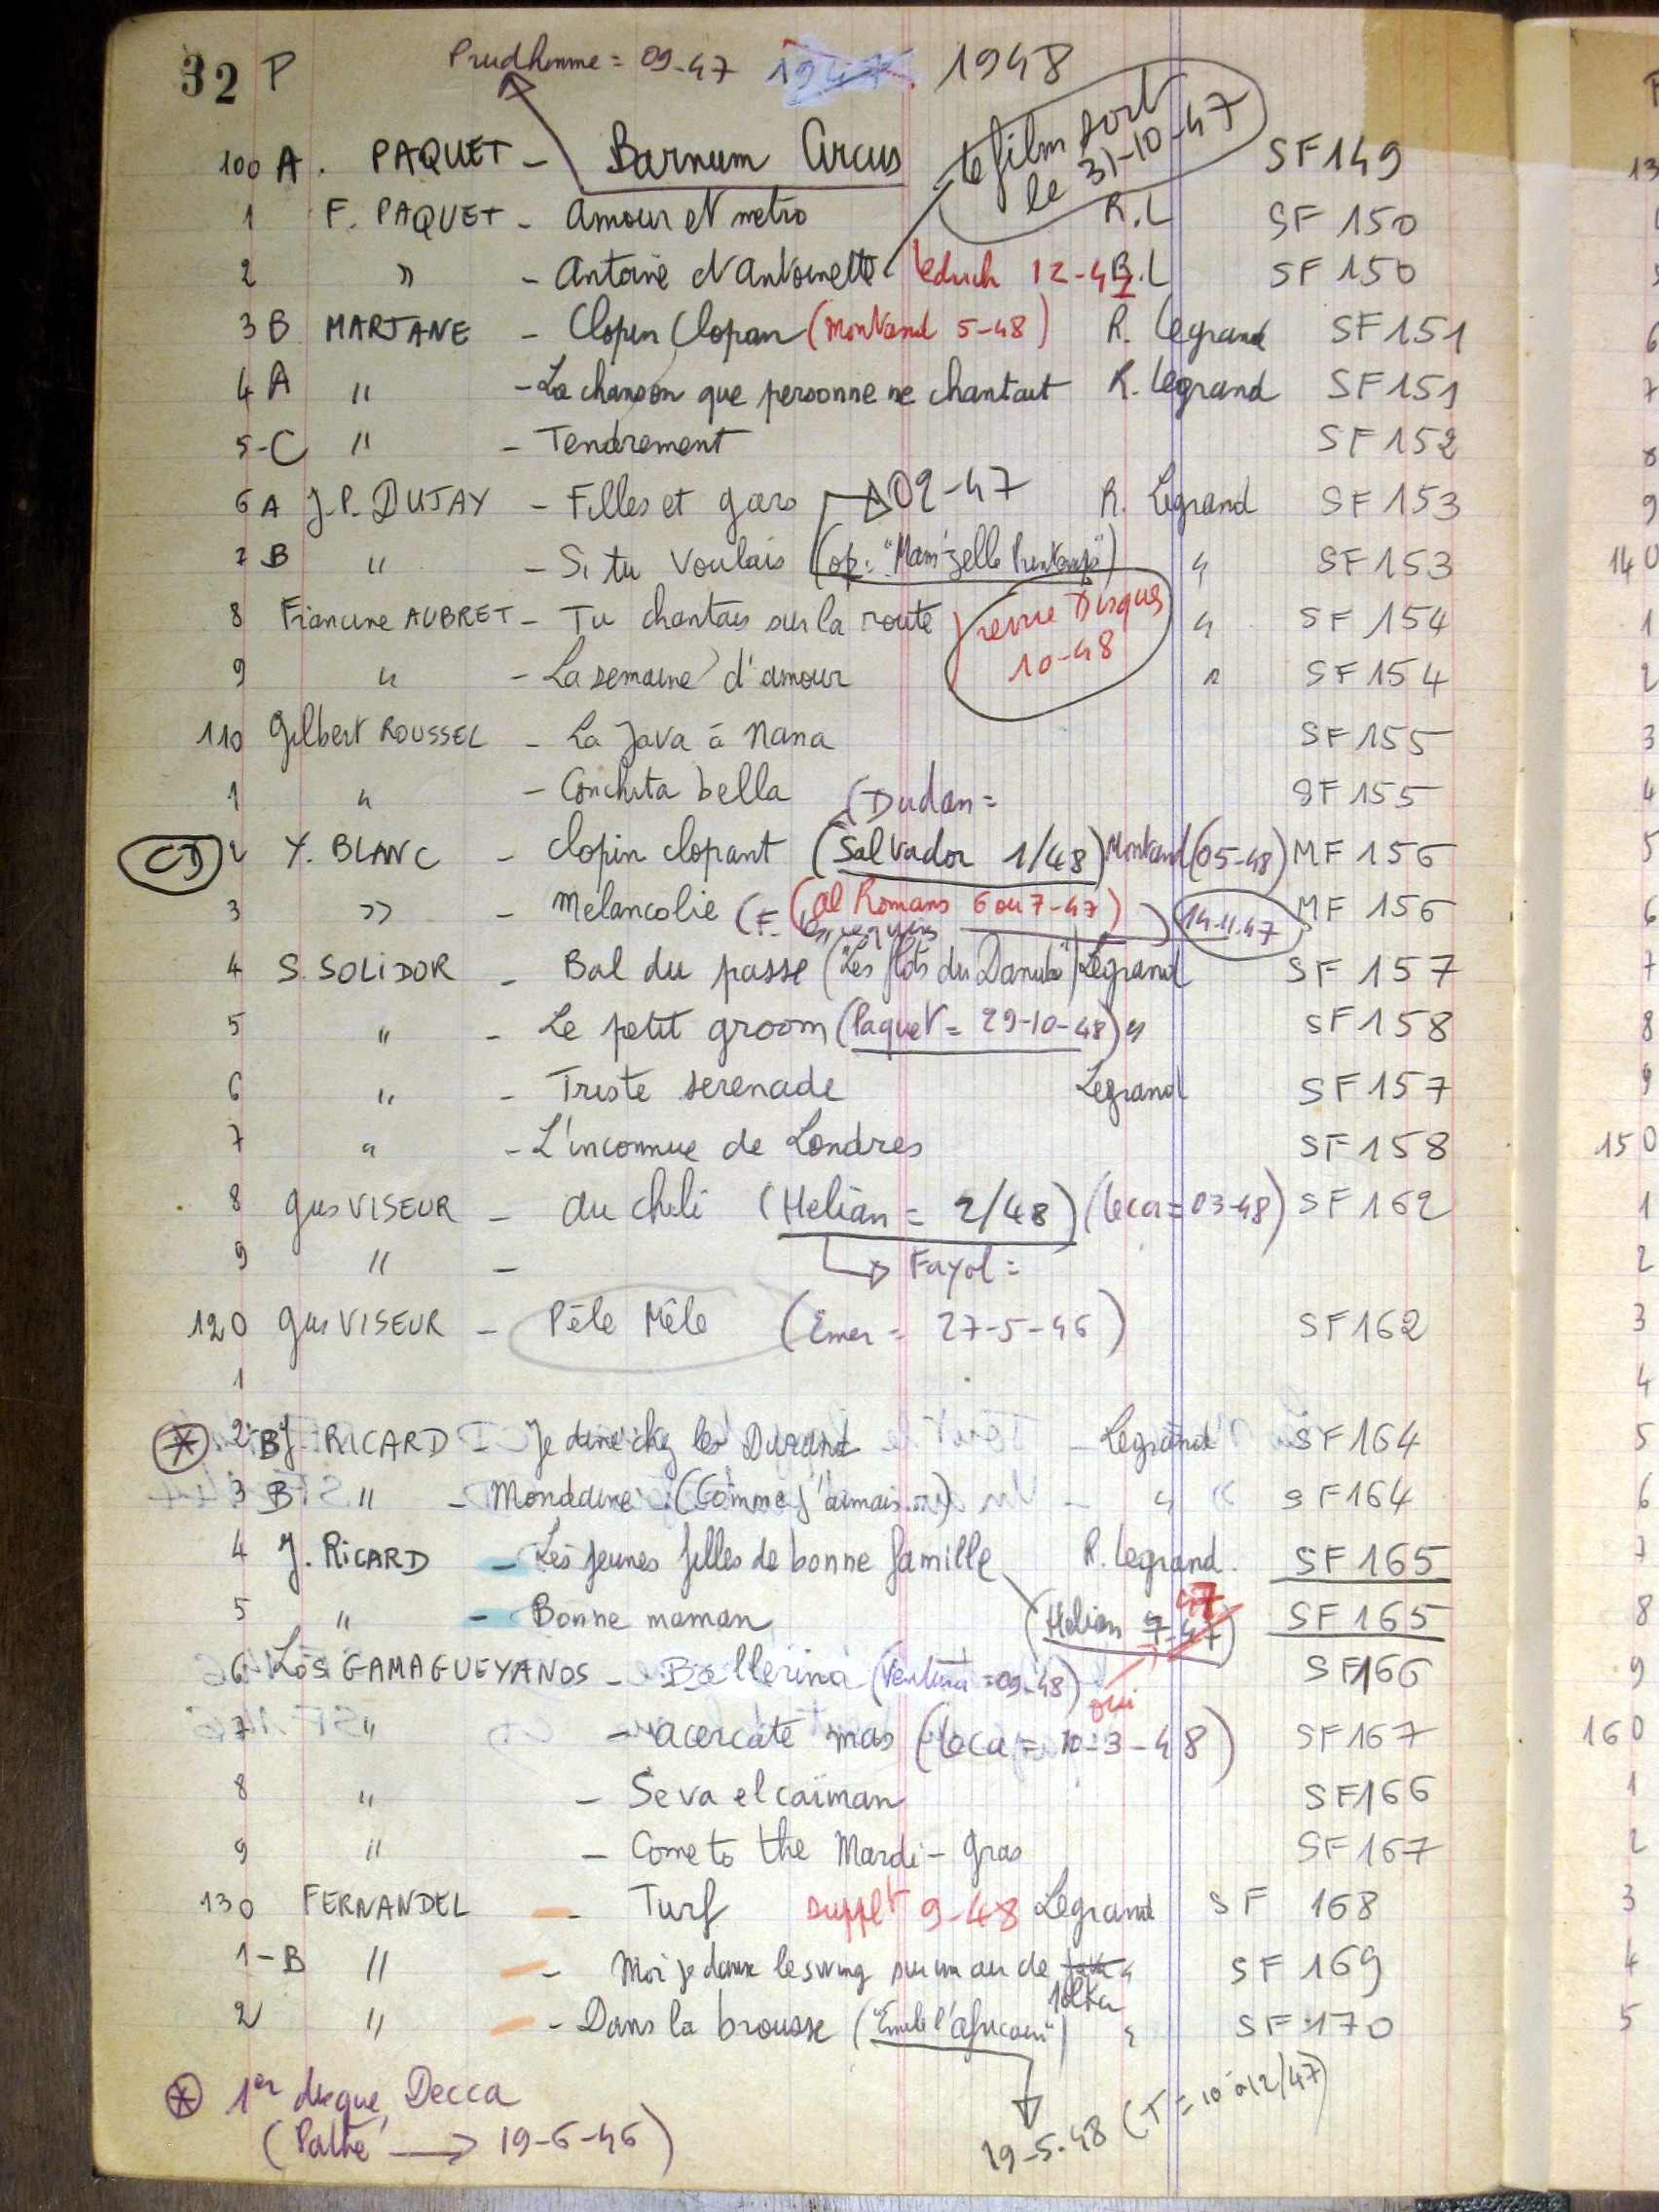 32 P Prudhomme = 09-47 1947 1948
100 A. PAQUET - Barnum Circus le film sort le 31-10-47 SF149
1 F. PAQUET - Amour et metro R.L SF 150
2 " - Antoine et Antoinette 12-47 R.L SF 150
3 B MARJANE - Clopin Clopan (Montand 5-48) R. Legrand SF151
4 A " - La chanson que personne ne chantait R. Legrand SF151
5-C " - Tendrement SF152
6 A J.P. DUJAY - Filles et gars 02-47 R. Legrand SF153
7 B " - Si tu voulais (op: "Mam'zelle Printemps") " SF153
8 Francine AUBRET - Tu chantais sur la route revue Disques 10-48 " SF 154
9 " - La semaine d'amour " SF 154
110 Gilbert ROUSSEL - La Java à Nana SF155
1 " - Conchita bella (Dudan = SF155
CD 2 Y. BLANC - Clopin clopant (Salvador 1/48) Montand (05-48) MF 156
3 " - Melancolie (F. (Al Romans 6 ou 7-47) ) 14-11-47 MF 156
4 S. SOLIDOR - Bal du passe ("Les flots du Danube") Legrand SF 157
5 " - Le petit groom (Paquet = 29-10-48) " SF158
6 " - Triste serenade Legrand SF157
7 " - L'inconnue de Londres SF158
8 Gus VISEUR - Au chili (Helian = 2/48) (Leca = 03-48) SF162
9 " - Fayol =
120 Gus VISEUR - Pêle Mêle (Emer = 27-5-46) SF162
1
* 2 B J. RICARD - Je dine chez les Durand - Legrand SF164
3 B " - Mondaine (Comme j'aimais...) " SF164
4 J. RICARD - Les jeunes filles de bonne famille R. Legrand. SF165
5 " - Bonne maman (Helian 7-47) 47 SF165
6 LOS GAMAGUEYANOS - Ballerina (Ventura = 09-48) oui SF166
7 " - acercate mas (Leca = 10-3-48) SF167
8 " - Se va el caïman SF166
9 " - Come to the Mardi-Gras SF167
130 FERNANDEL - Turf supplt 9-48 Legrand SF 168
1-B " - Moi je danse le swing sur un air de java " SF 169
polka
2 " - Dans la brousse ("Emile l'africain") " SF170
* 1er disque Decca
(Pathé → 19-6-46)
19-5-48 (T = 10 à 12/47)
13
1
6
7
8
9
140
1
2
3
4
5
6
7
8
9
150
1
2
3
4
5
6
7
8
9
160
1
2
3
4
5